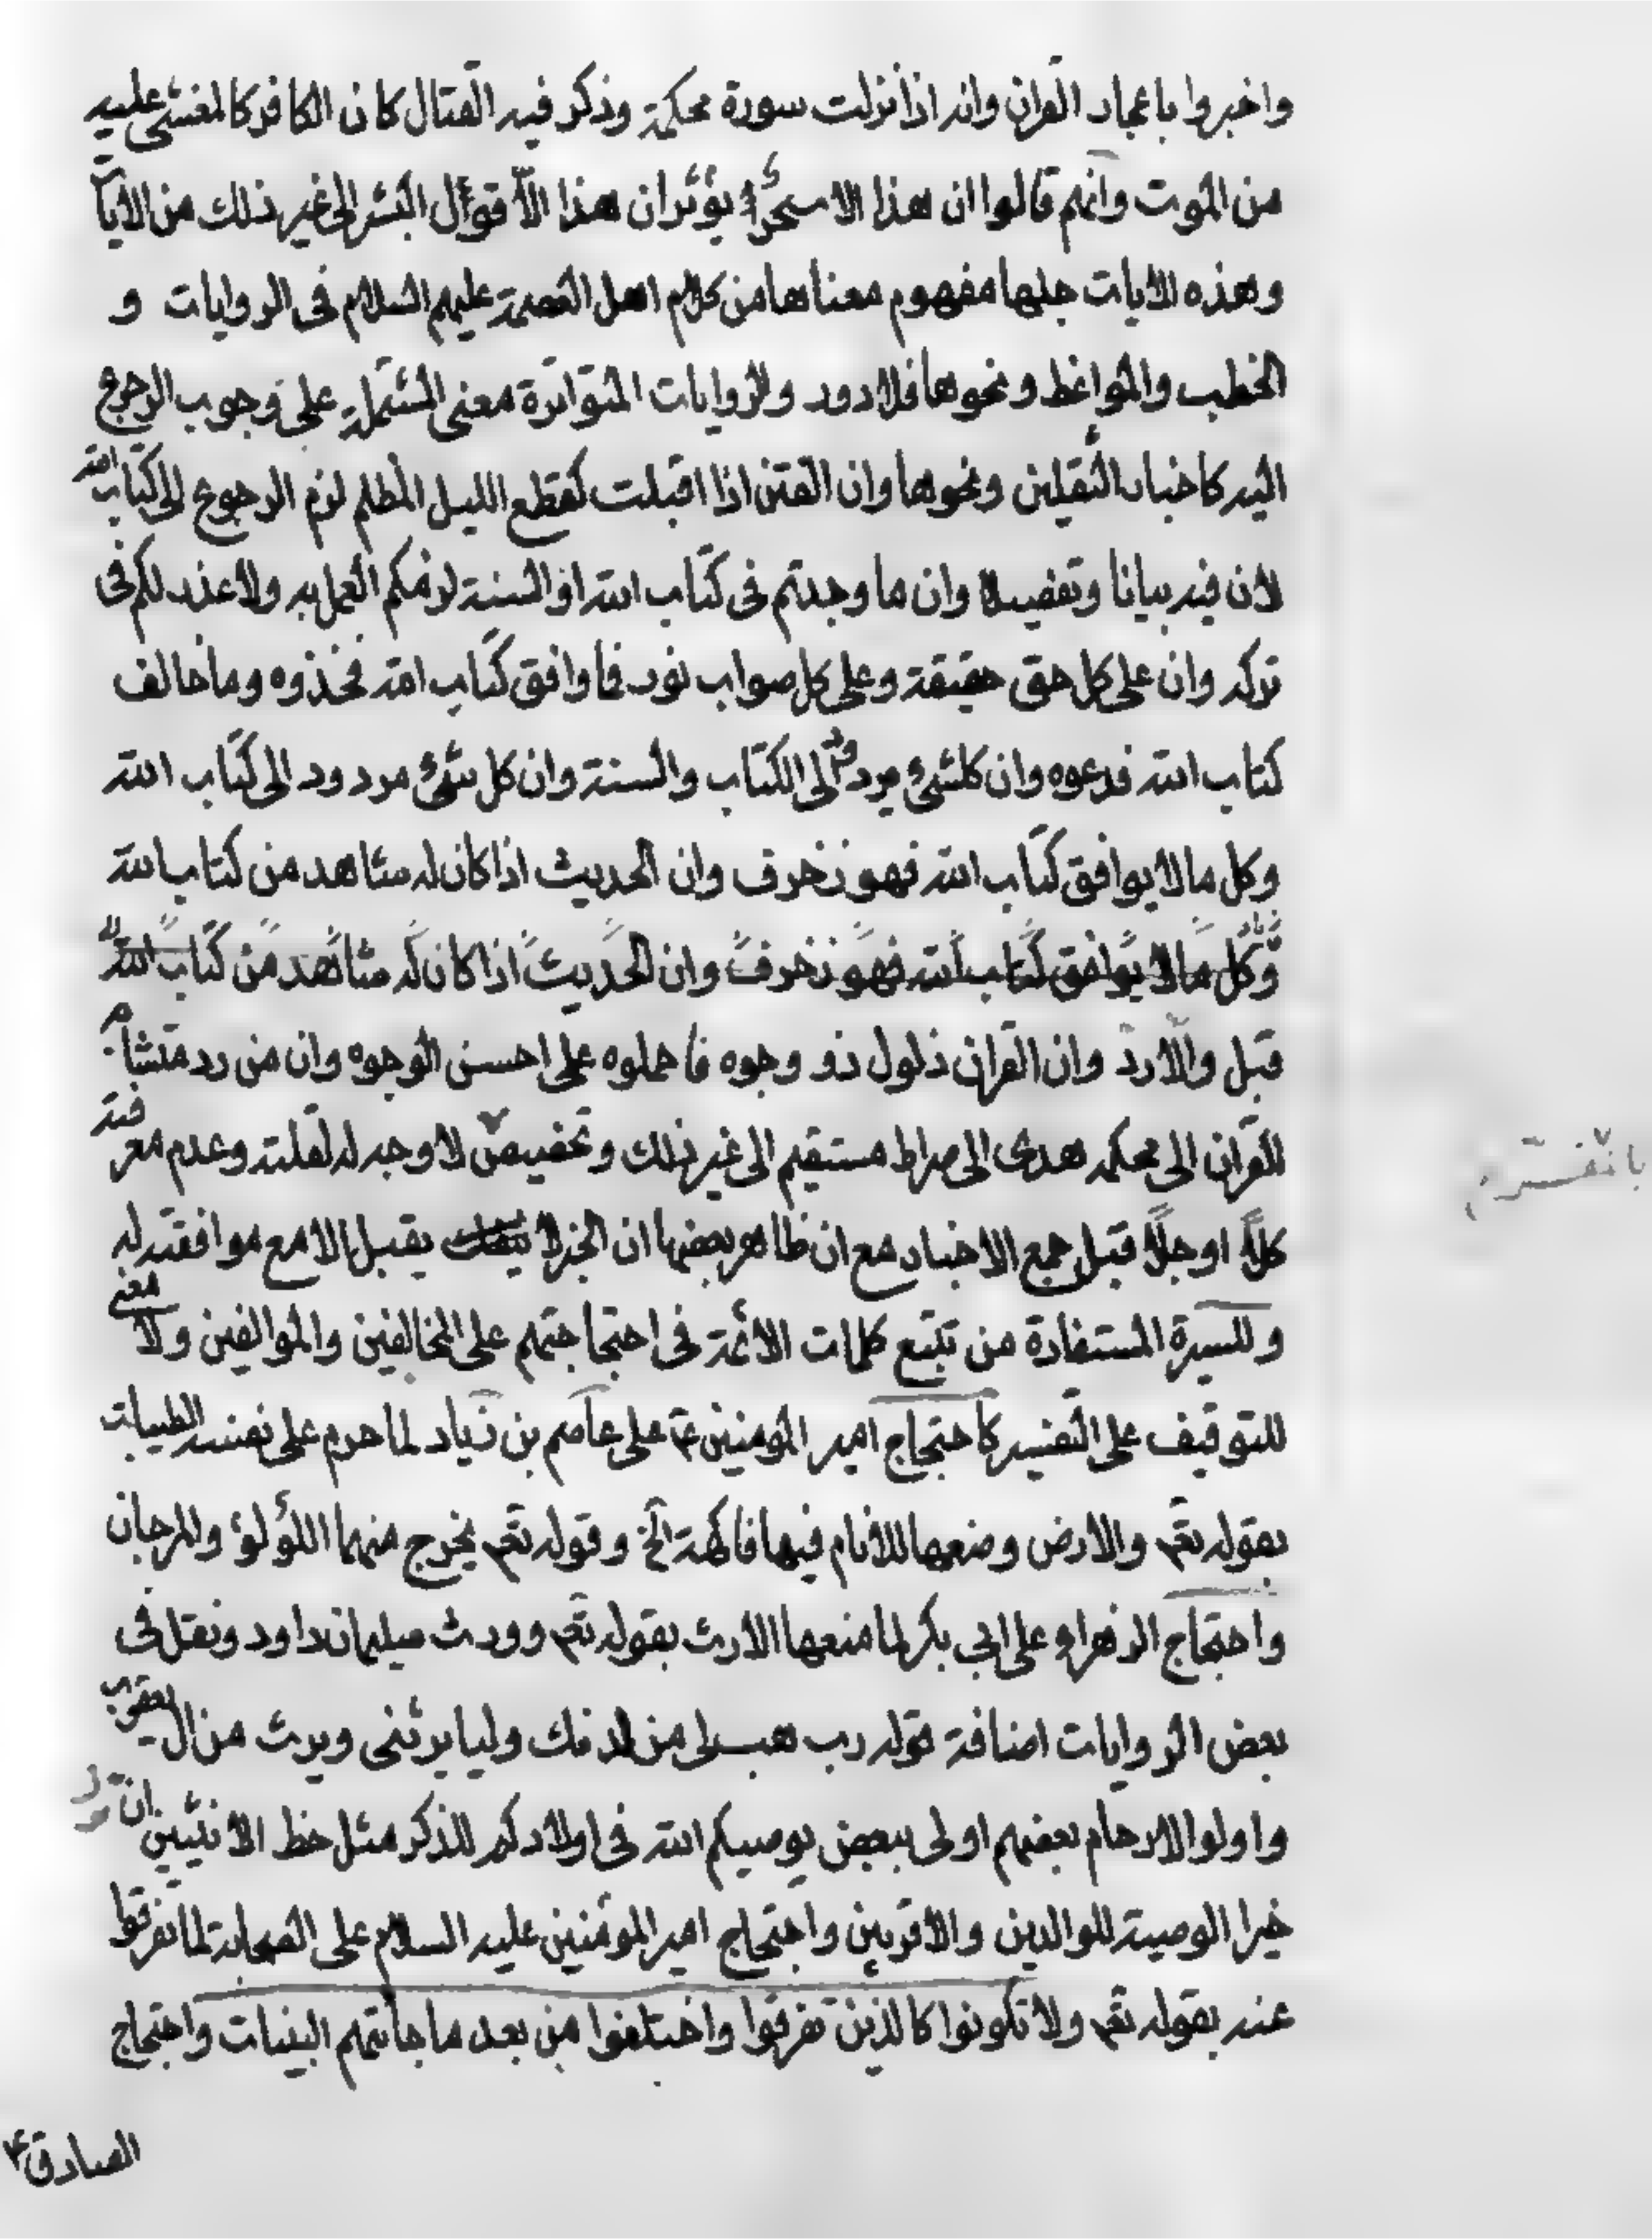 واخبروا باعجاز القران وانه اذا نزلت سورة محكمة وذكر فيه القتال كان الكافر كالمغشى عليه
من الموت وانهم قالوا ان هذا الا سحر يؤثر ان هذا الا قول البشر الى غير ذلك من الايات
وهذه الايات جلها مفهوم معناها من كلام اهل العصمة عليهم السلام فى الروايات و
الخطب والمواعظ ونحوها فلا دور وللروايات المتواترة معنى المشتملة على وجوب الرجوع
اليه كاخبار الثقلين ونحوها وان الفتن اذا اقبلت كقطع الليل المظلم لزم الرجوع الى كتاب الله
لان فيه بيانا وتفصيلا وان ما وجدتم فى كتاب الله او السنة لزمكم العمل به ولا عذر لكم فى
تركه وان على كل حق حقيقة وعلى كل صواب نور فما وافق كتاب الله فخذوه وما خالف
كتاب الله فدعوه وان كلشئ مردود الى الكتاب والسنة وان كل شئ مردود الى كتاب الله
وكل ما لا يوافق كتاب الله فهو زخرف وان الحديث اذا كان له شاهد من كتاب الله
وكل ما لا يوافق كتاب الله فهو زخرف وان الحديث اذا كان له شاهد من كتاب الله
قبل والا رد وان القران ذلول ذو وجوه فاحملوه على احسن الوجوه وان من رد متشابه
القرآن الى محكمه هدى الى صراط مستقيم الى غير ذلك وتخصيص لا وجه له لقلته وعدم معرفته
كلا او جلا قبل جمع الاخبار مع ان ظاهر بعضها ان الخبر لا يقبل الا مع موافقته له
وللسيرة المستفادة من تتبع كلمات الائمة فى احتجاجتهم على المخالفين والموالفين ولا معنى
للتوقيف على التفسير كاحتجاج امير المومنين ع على عاصم بن زياد لما حرم على نفسه الطيبات
بقوله تعم والارض وضعها للانام فيها فاكهة الخ وقوله تعم يخرج منهما اللؤلؤ والمرجان
واحتجاج الزهراء على ابي بكر لما منعها الارث بقوله تعم وورث سيلمان داود ونقل فى
بعض الروايات اضافة قوله رب هب لى من لدنك وليا يرثنى ويرث من ال يعقوب
واولوا الارحام بعضهم اولى ببعض يوصيكم الله فى اولادكم للذكر مثل حظ الانثيين ان ترك
خيرا الوصية للوالدين والاقربين واحتجاج امير المؤمنين عليه السلام على الصحابة لما تفرقوا
عنه بقوله تعم ولا تكونوا كالذين تفرقوا واختلفوا من بعد ما جائتهم البينات واحتجاج
الصادق ع